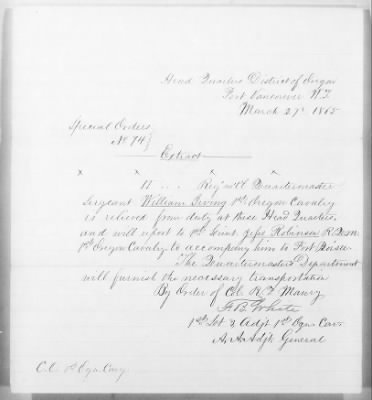 Head Quarters District of Oregon
Fort Vancouver W.T.
March 27th 1865
Special Orders
No 74
Extract
x x x x x
II .. Reg'mtl Quartermaster
Sergeant William Irving 1st Oregon Cavalry
is relieved from duty at these Head Quarters,
and will report to 1st Lieut Jess Robinson R.Q.M.
1st Oregon Cavalry to accompany him to Fort Boise.
The Quartermasters Department
will furnish the necessary transportation
By Order of Col. R. F. Maury
F. B. White
1st Lt & Adjt 1st Ogn. Cav
A. A. Adjt General
C.O. 1st Ogn. Cavy.